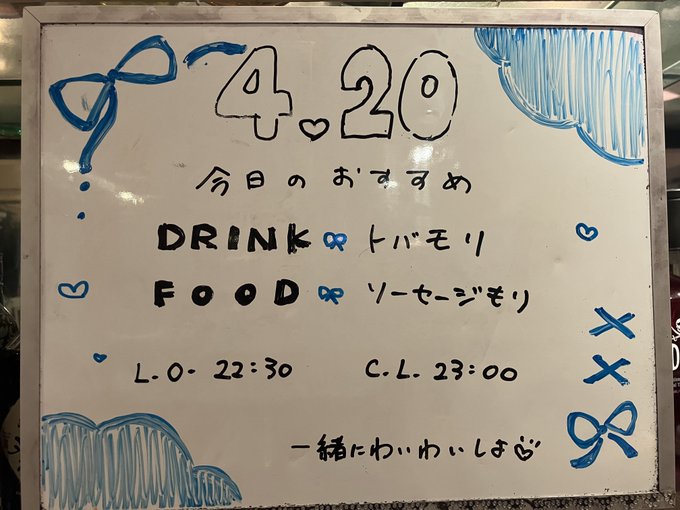 4.20
今日のおすすめ
DRINK トバモリ
FOOD ソーセージモリ
L.O. 22:30 C.L. 23:00
一緒にわいわいしよ